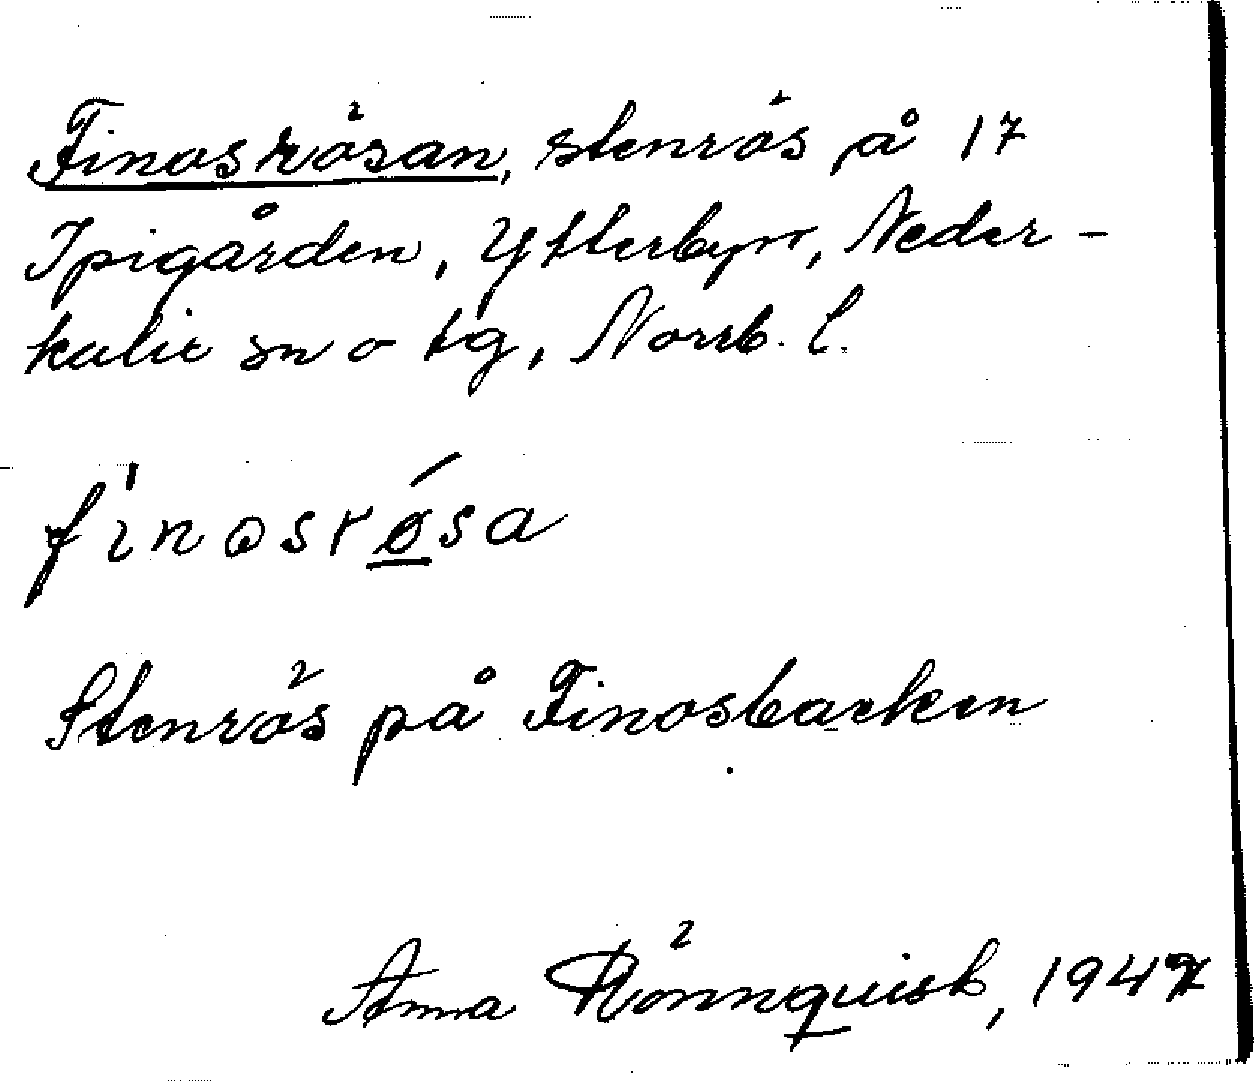 Finosrösan, stenrös på 17
Ipigården, Ytterbyn, Neder-
kalix sn o tg, Norrb. l.
finosrǿ̲sa
Stenrös på Finosbacken
Anna Rönnquist, 1947